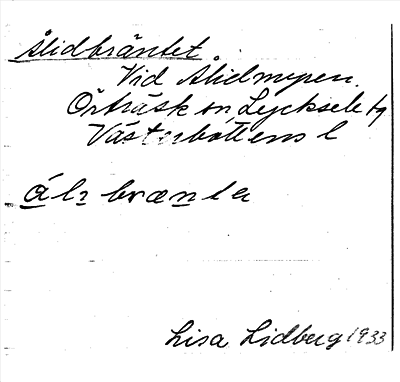 Ålidbräntet
Vid Ålidmyren.
Örträsk sn, Lycksele tg
Västerbottens l
Lisa Lidberg 1933